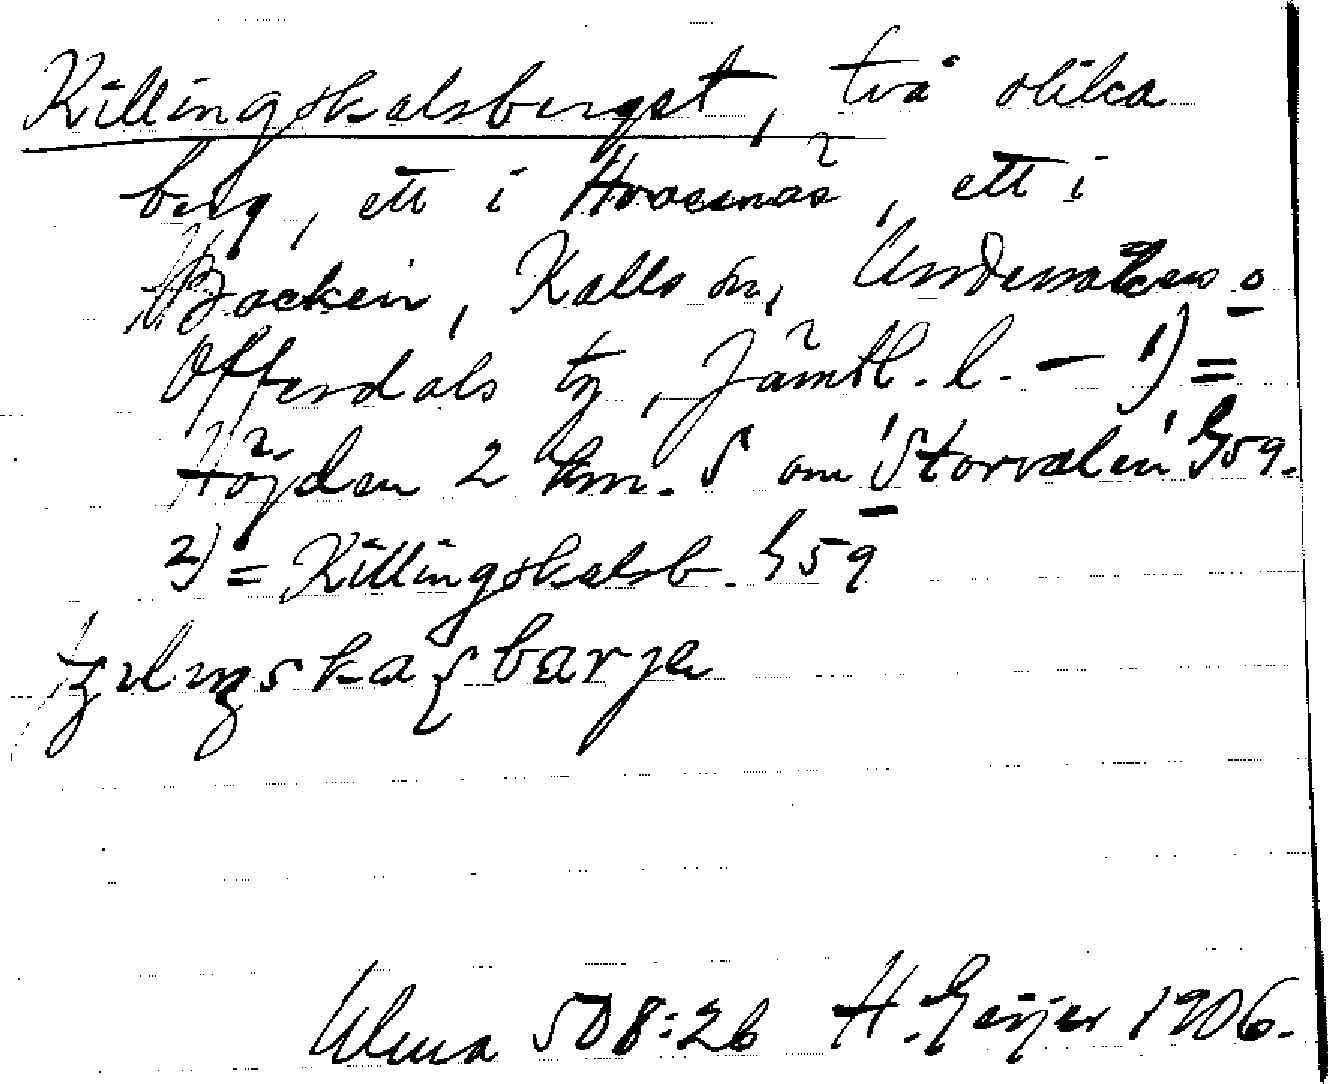 Killingskalsberget, två olika
berg, ett i Hvoenäs, ett i
Backen, Kalls sn, Undersåkers o
Offerdals tg, Jämtl. l. — 1) =
Höjden 2 km. S om 'Storvalen' G59.
2) = Killingskalsb. G59
Ulma 508:26 H. Geijer 1906.